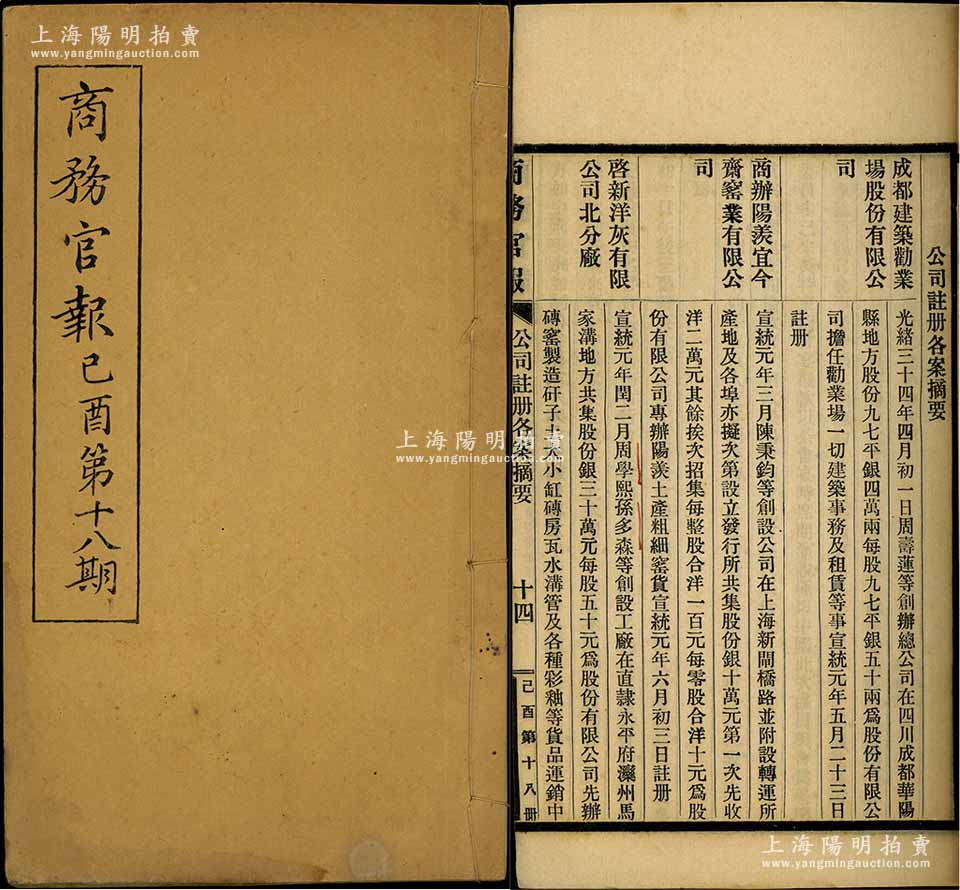 上海陽明拍賣
www.yangmingauction.com
商務官報己酉第十八期
上海陽明拍賣
www.yangmingauction.com
公司註册各案摘要
成都建築勸業
場股份有限公
司
光緒三十四年四月初一日周壽蓮等創辦總公司在四川成都華陽
縣地方股份九七平銀四萬兩每股九七平銀五十兩爲股份有限公
司擔任勸業場一切建築事務及租賃等事宣統元年五月二十三日
註册
商辦陽羨宜今
齋窰業有限公
司
宣統元年三月陳秉鈞等創設公司在上海新閘橋路並附設轉運所
產地及各埠亦擬次第設立發行所共集股份銀十萬元第一次先收
洋二萬元其餘挨次招集每整股合洋一百元每零股合洋十元爲股
份有限公司專辦陽羨土產粗細窰貨宣統元年六月初三日註册
啓新洋灰有限
公司北分廠
宣統元年閏二月周學熙孫多森等創設工廠在直隸永平府灤州馬
家溝地方共集股份銀三十萬元每股五十元爲股份有限公司先辦
磚窰製造矸子土大小缸磚房瓦水溝管及各種彩釉等貨品運銷中
商務官報
公司註册各案摘要
十四
己酉第十八册
上海陽明拍賣
www.yangmingauction.com
上海陽明拍賣
www.yangmingauction.com